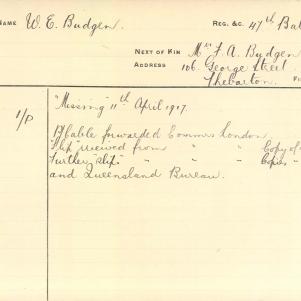 NAME W. E. Budgen. REG. &C. 47th Bat
NEXT OF KIN Mrs F. A. Budgen
ADDRESS 106. George Street
Thebarton.
"Missing" 11th April 1917.
1/P cable forwarded Commrs London
Slip received from " " Copy of
Further slip " " " Copies "
and Queensland Bureau.